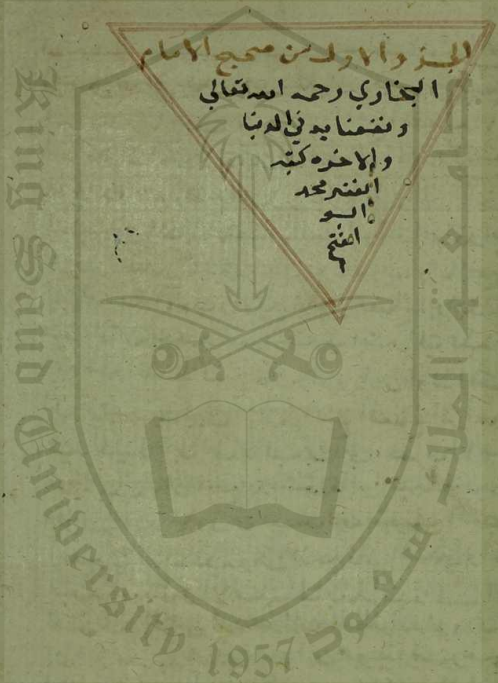 الجزؤ الاول من صحيح الامام
البخاري رحمه الله تعالى
ونفعنا به في الدنيا
والاخره كتبه
الفقير محمد
ابو
الفتح
King Saud University 1957
جامعة الملك سعود